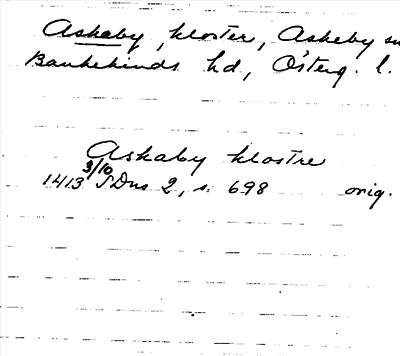 Askaby, kloster, Askeby sn
Bankekinds hd, Österg. l.
Askaby klostre
1413 3/10 SDns 2, s. 698 orig.